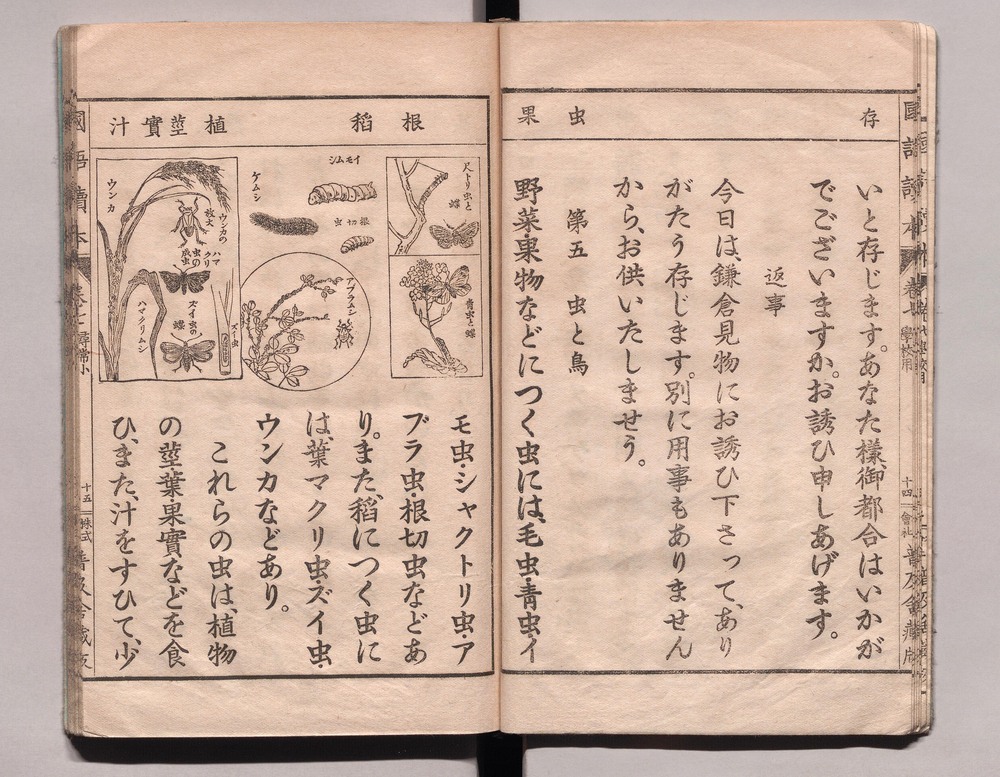 存
虫
果
いと存じます。あなた様、御都合はいかが
でございますか。お誘ひ申しあげます。
返事
今日は、鎌倉見物にお誘ひ下さって、あり
がたう存じます。別に用事もありません
から、お供いたしませう。
第五 虫と鳥
野菜・果物などにつく虫には、毛虫・青虫・イ
國語讀本
十四
根
稻
植
莖
實
汁
尺トリ虫と蝶
青虫と蝶
イモムシ
ケムシ
根切虫
アブラムシ
ウンカ
ウンカの放大
ハマクリ虫の成虫
ズイ虫の蝶
ハマクリムシ
ズイ虫
モ虫・シャクトリ虫・ア
ブラ虫・根切虫などあ
り。また、稻につく虫に
は、葉マクリ虫・ズイ虫・
ウンカなどあり。
これらの虫は、植物
の莖・葉・果實などを食
ひ、また、汁をすひて、少
國語讀本
尋常小
十五
株式